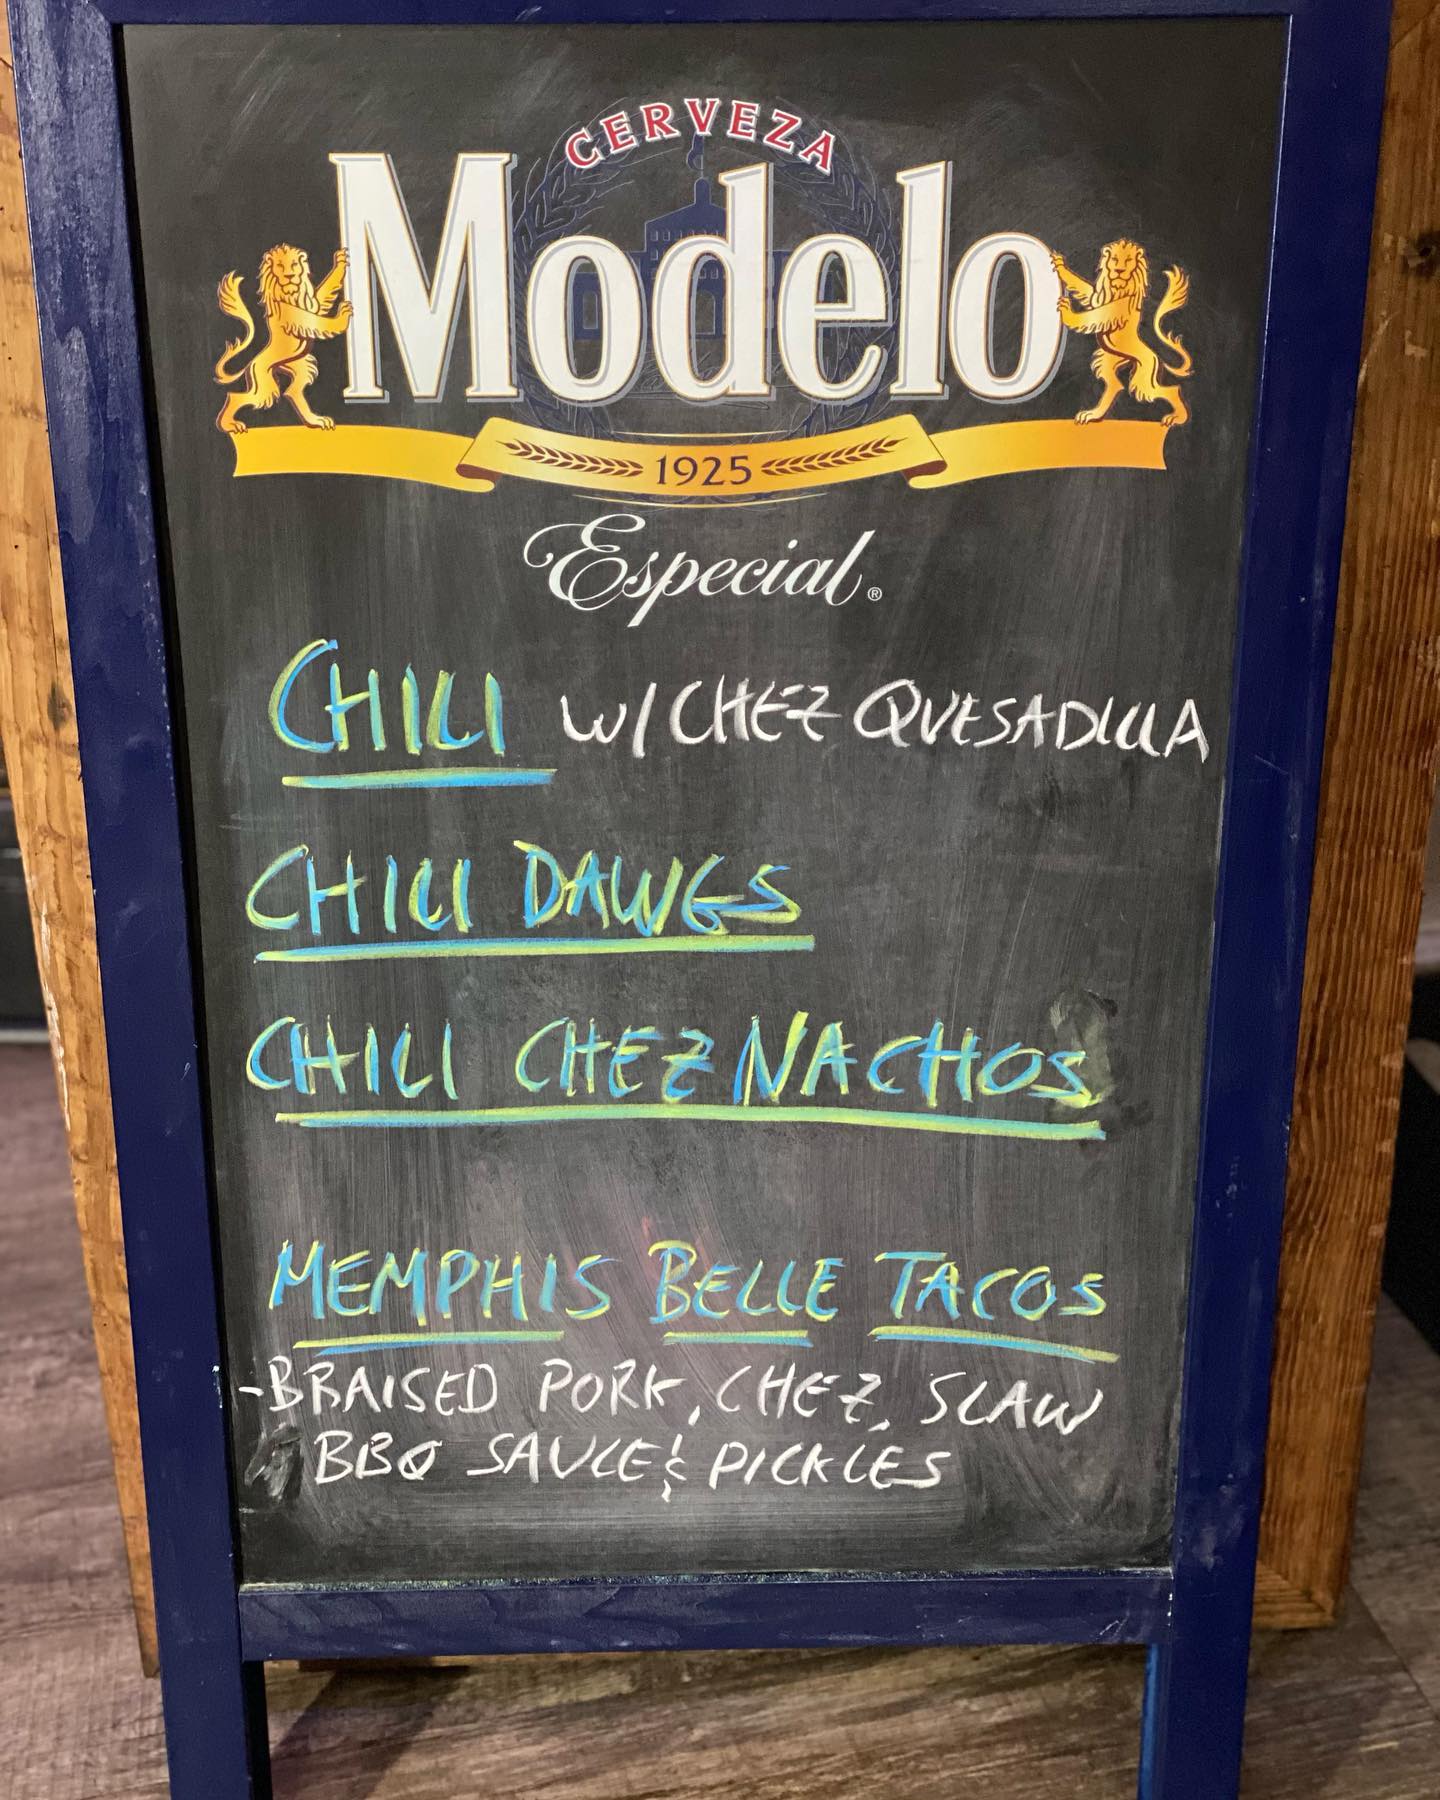 CERVEZA
Modelo
1925
Especial®
CHILI W/ CHEZ QUESADILLA
CHILI DAWGS
CHILI CHEZ NACHOS
MEMPHIS BELLE TACOS
-BRAISED PORK, CHEZ, SLAW
BBQ SAUCE & PICKLES